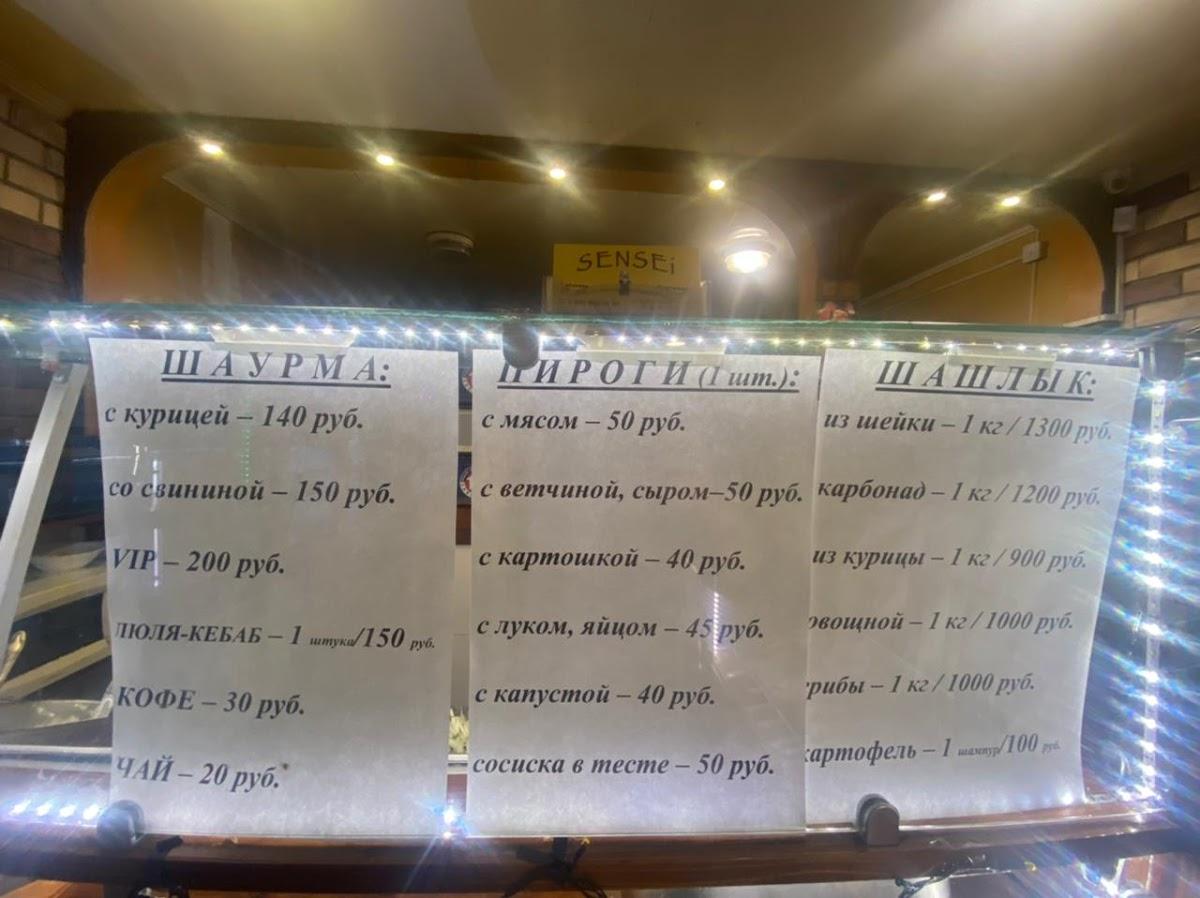 SENSEi
ШАУРМА:
с курицей – 140 руб.
со свининой – 150 руб.
VIP – 200 руб.
ЛЮЛЯ-КЕБАБ – 1 штука/150 руб.
КОФЕ – 30 руб.
ЧАЙ – 20 руб.
ПИРОГИ (1 шт.):
с мясом – 50 руб.
с ветчиной, сыром–50 руб.
с картошкой – 40 руб.
с луком, яйцом – 45 руб.
с капустой – 40 руб.
сосиска в тесте – 50 руб.
ШАШЛЫК:
из шейки – 1 кг / 1300 руб.
карбонад – 1 кг / 1200 руб.
из курицы – 1 кг / 900 руб.
овощной – 1 кг / 1000 руб.
грибы – 1 кг / 1000 руб.
картофель – 1 шампур/100 руб.